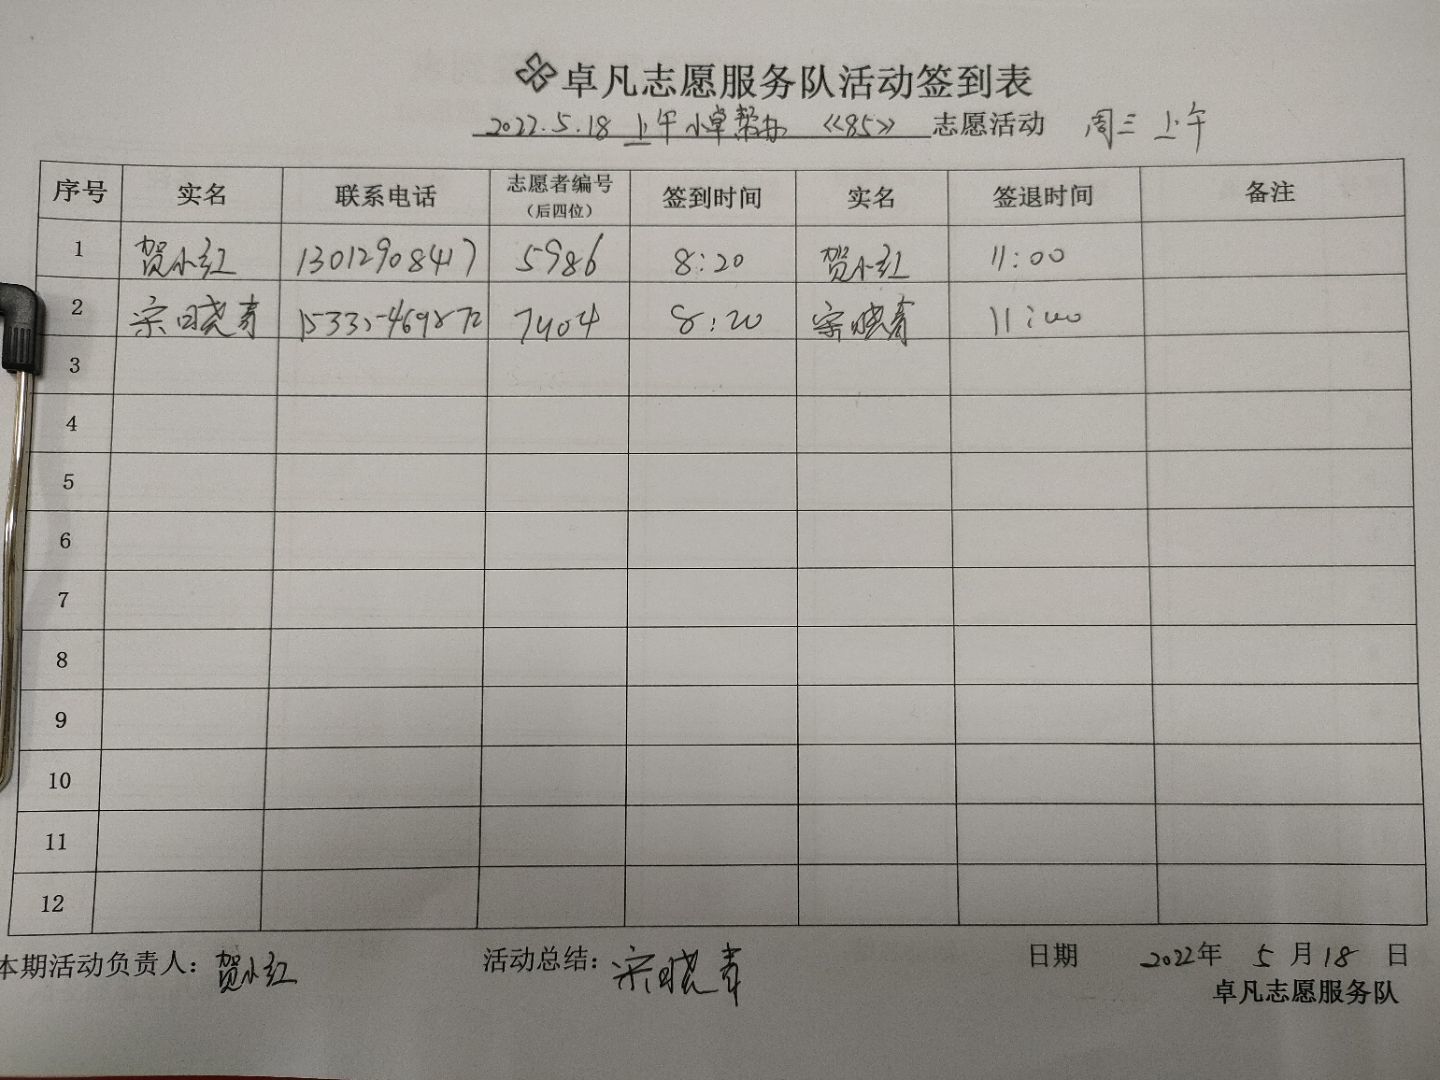 卓凡志愿服务队活动签到表
2022.5.18 上午 小卓帮办 《85》 志愿活动 周三 上午
序号 实名 联系电话 志愿者编号（后四位） 签到时间 实名 签退时间 备注
1 贺小红 13012908417 5986 8:20 贺小红 11:00
2 宋晓青 7404 8:20 宋晓青 11:00
3
4
5
6
7
8
9
10
11
12
本期活动负责人：贺小红 活动总结：宋晓青 日期 2022年 5 月 18 日
卓凡志愿服务队